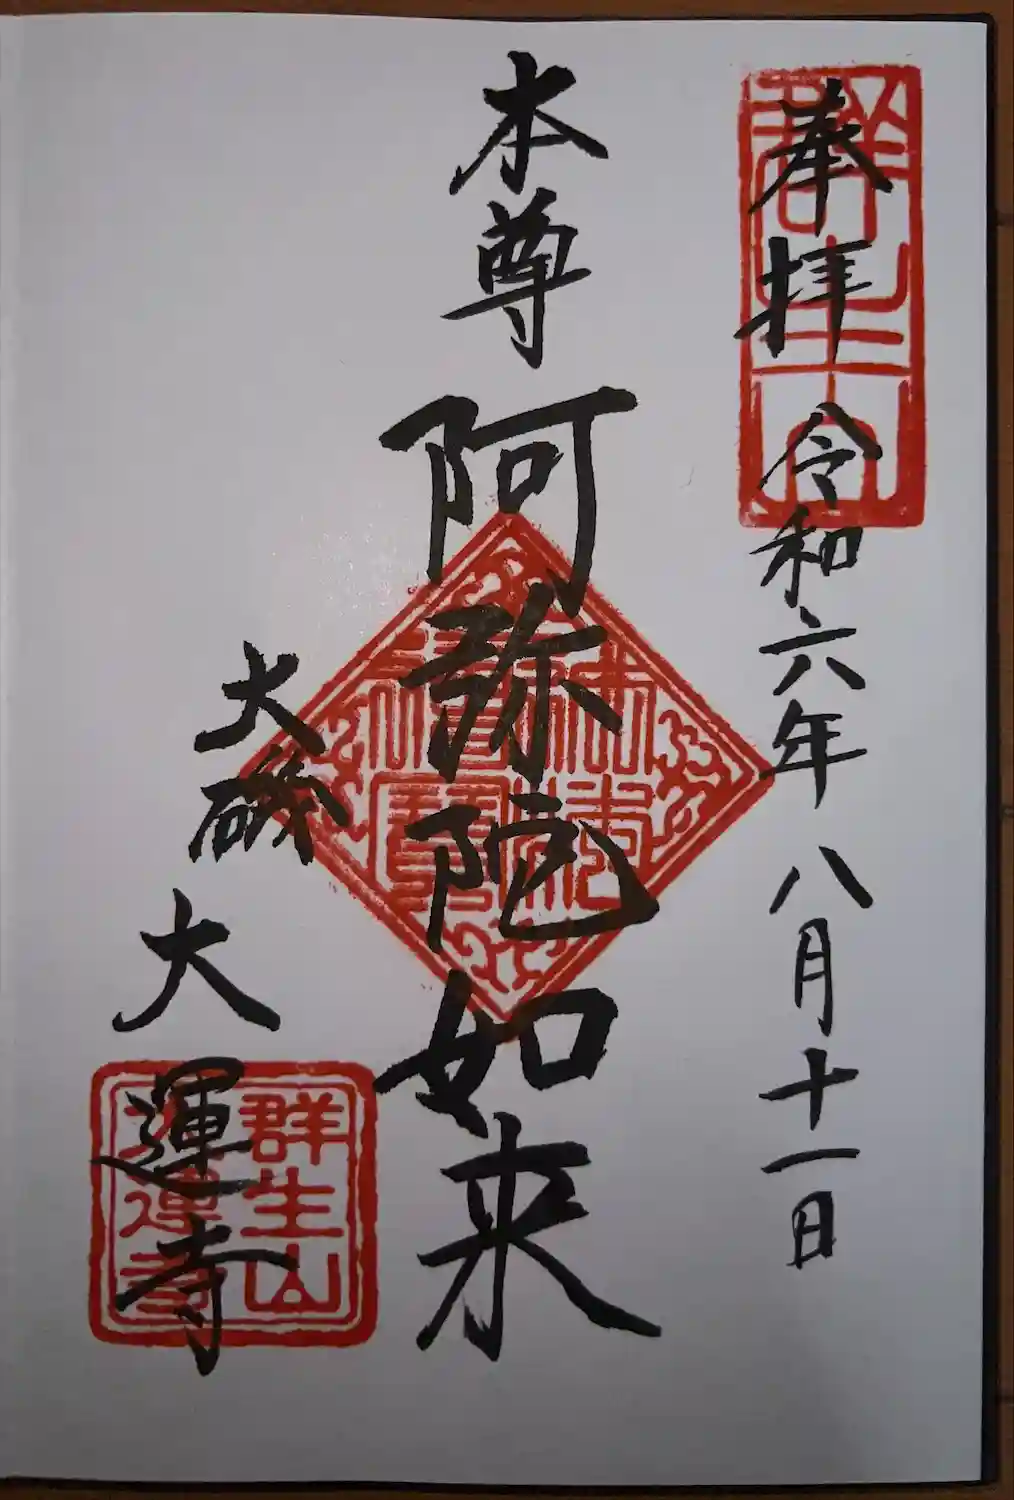 奉拝 令和六年 八月十一日
群生山
本尊 阿弥陀如来
大磯 大運寺
群生山
大運寺